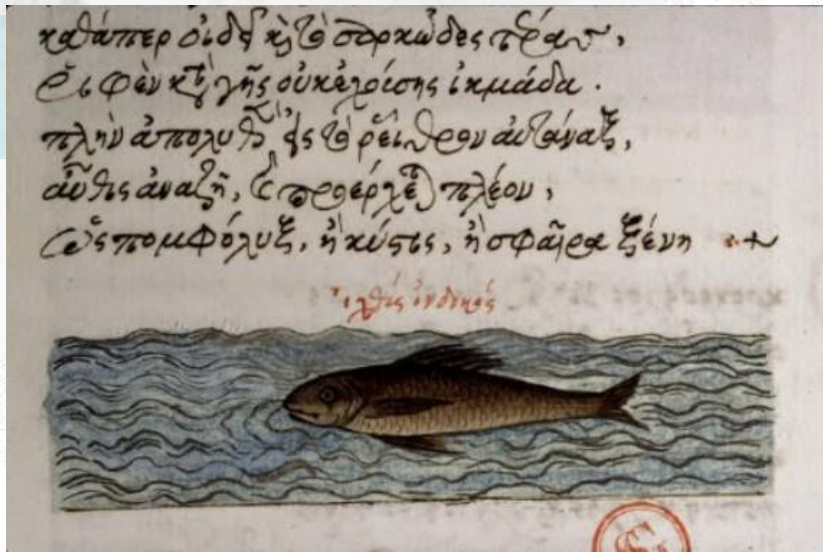 καθάπερ οἶδε κὶ τὸ σαρκῶδες
ῥιφὲν κτ γῆς οὐκ ἐχούσης ἰκμάδα.
πλὴν ἀπολυθ εἰς τὸ ῥεῖθρον αὐτάναξ,
αὖθις ἀναζῆ, προέρχετ πλέον,
ὡς πομφόλυξ, ἢ κύστις, ἢ σφαῖρα ξένη
ἰχθὺς ἰνδικός